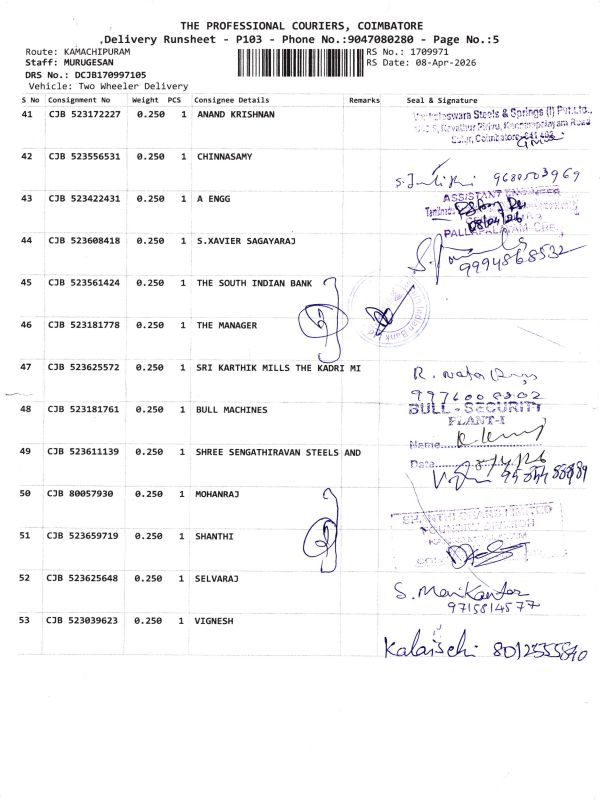 THE PROFESSIONAL COURIERS, COIMBATORE
Delivery Runsheet - P103 - Phone No.:9047080280 - Page No.:5
Route: KAMACHIPURAM RS No.: 1709971
Staff: MURUGESAN RS Date: 08-Apr-2026
DRS No.: DCJB170997105
Vehicle: Two Wheeler Delivery
S No Consignment No Weight PCS Consignee Details Remarks Seal & Signature
41 CJB 523172227 0.250 1 ANAND KRISHNAN
Steels & Springs (I) Pvt.Ltd.,
42 CJB 523556531 0.250 1 CHINNASAMY
9688503969
43 CJB 523422431 0.250 1 A ENGG
ASSISTANT
08/04/26
44 CJB 523608418 0.250 1 S.XAVIER SAGAYARAJ
9994868532
45 CJB 523561424 0.250 1 THE SOUTH INDIAN BANK
Indian Bank
46 CJB 523181778 0.250 1 THE MANAGER
47 CJB 523625572 0.250 1 SRI KARTHIK MILLS THE KADRI MI
48 CJB 523181761 0.250 1 BULL MACHINES
BULL - SECURITY
PLANT-I
Name
49 CJB 523611139 0.250 1 SHREE SENGATHIRAVAN STEELS AND
Date
50 CJB 80057930 0.250 1 MOHANRAJ
51 CJB 523659719 0.250 1 SHANTHI
FOUNDRY DIVISION
52 CJB 523625648 0.250 1 SELVARAJ
S.
9715814577
53 CJB 523039623 0.250 1 VIGNESH
8012555840